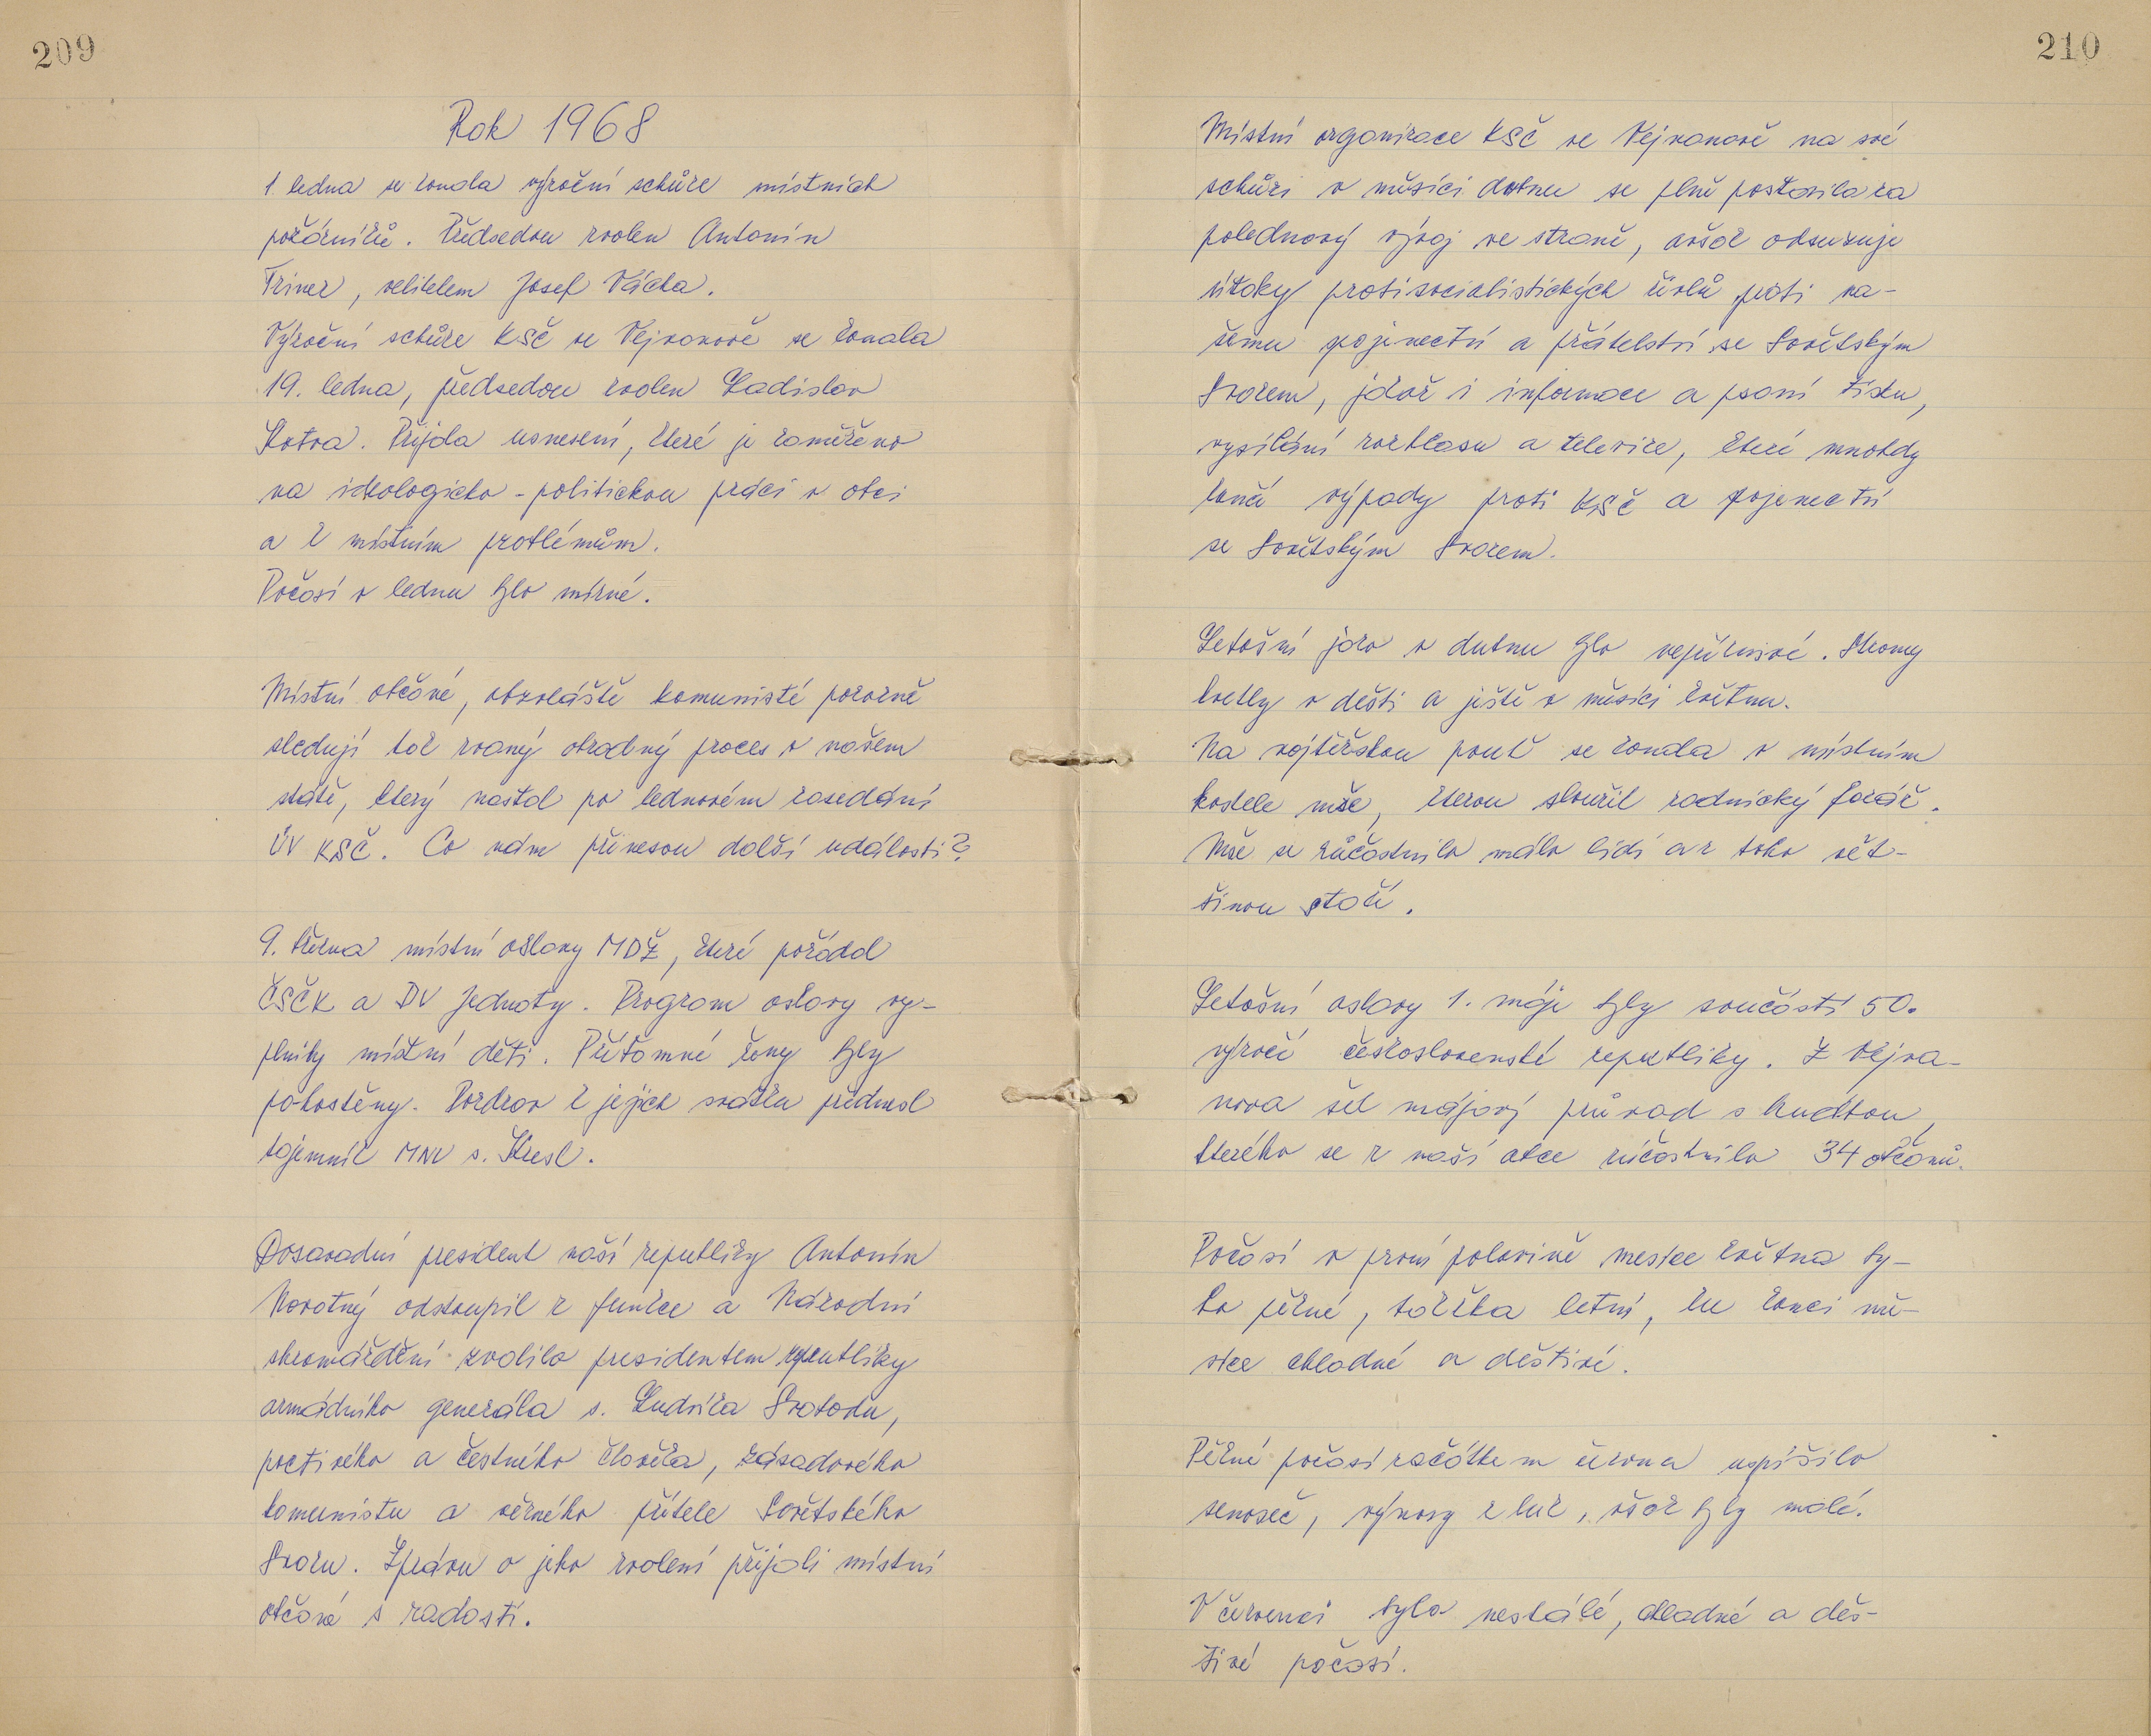 209
Rok 1968
1. ledna se konala výroční schůze místních
požárníků. Předsedou zvolen Antonín
Triner, velitelem Josef Vácha.
Výroční schůze KSČ ve Vejvanově se konala
19. ledna, předsedou zvolen Ladislav
Kotva. Přijala usnesení, které je zaměřeno
na ideologicko-politickou práci v obci
a k místním problémům.
Počasí v lednu bylo mírné.
Místní občané, obzvláště komunisté pozorně
sledují tak zvaný obrodný proces v našem
státě, který nastal po lednovém zasedání
ÚV KSČ. Co nám přinesou další události?
9. března místní oslavy MDŽ, které pořádal
ČSČK a DV Jednoty. Program oslavy vy-
plnily místní děti. Přítomné ženy byly
pohostěny. Pozdrav k jejich svátku přednesl
tajemník MNV s. Kresl.
Dosavadní president naší republiky Antonín
Novotný odstoupil z funkce a Národní
shromáždění zvolilo presidentem republiky
armádního generála s. Ludvíka Svobodu,
poctivého a čestného člověka, zásadového
komunistu a věrného přítele Sovětského
Svazu. Zprávu o jeho zvolení přijali místní
občané s radostí.
210
Místní organizace KSČ ve Vejvanově na své
schůzi v měsíci dubnu se plně postavila za
polednový vývoj ve straně, avšak odsuzuje
útoky protisocialistických živlů proti na-
šemu spojenectví a přátelství se Sovětským
Svazem, jakož i informace a psaní tisku,
vysílání rozhlasu a televize, které mnohdy
koná výpady proti KSČ a spojenectví
se Sovětským Svazem.
Letošní jaro v dubnu bylo nepříznivé. Stromy
kvetly v dešti a ještě v měsíci květnu.
Na vojtěšskou pouť se konala v místním
kostele mše, kterou sloužil radnický farář.
Mše se zůčastnilo málo lidí a z toho vět-
šinou staří.
Letošní oslavy 1. máje byly součástí 50.
výročí československé republiky. Z Vejva-
nova šel májový průvod s hudbou,
kterého se z naší obce zúčastnilo 34 občanů.
Počasí v první polovině mesíce května by-
lo pěkné, takřka letní, ku konci mě-
síce chladné a deštivé.
Pěkné počasí začátkem června uspíšilo
senoseč, výnosy z luk, však byly malé.
V červenci bylo nestálé, chladné a deš-
tivé počasí.